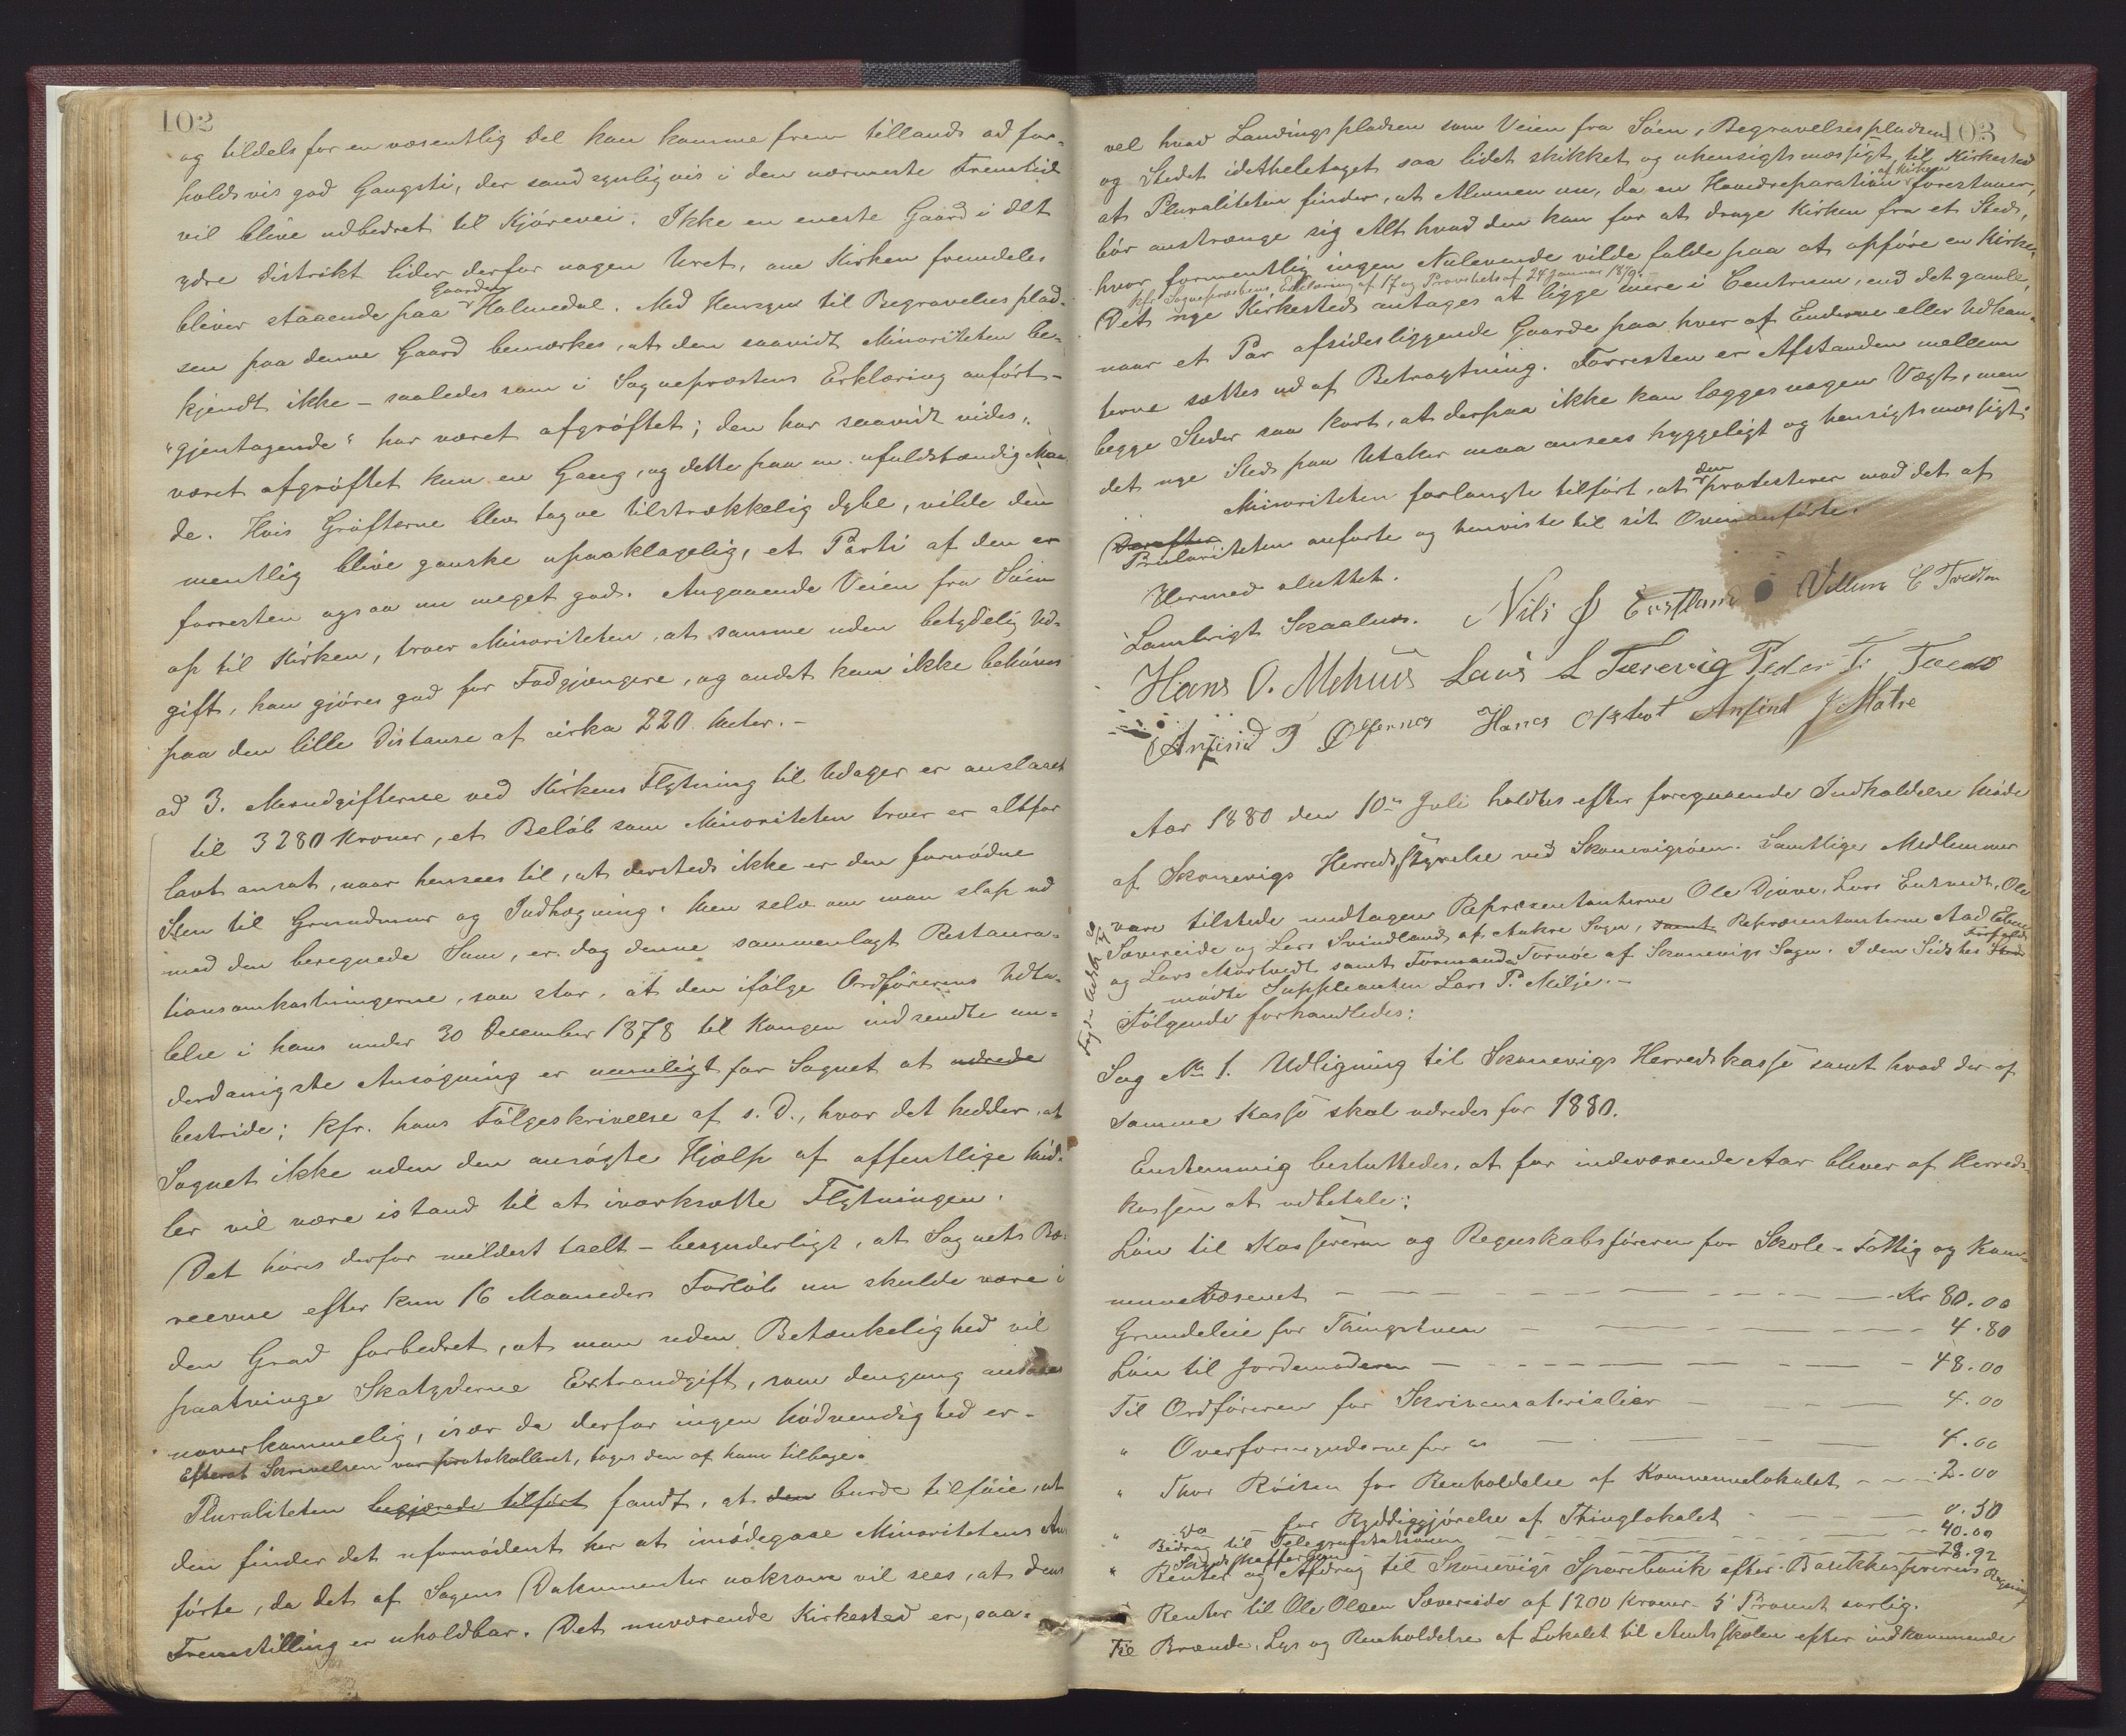 102
og tildels for en væsentlig Del kan komme frem tillands ad for-
holdsvis god Gangsti, der sandsynligvis i den nærmeste Fremtid
vil blive udbedret til Kjørevei. Ikke en eneste Gaard i det
ydre Distrikt lider derfor nogen Uret, om Kirken fremdeles
Gaarden
bliver staaende paa Holmedal. Med Hensyn til Begravelsesplad-
sen paa denne Gaard bemærkes, at den saavidt Minoriteten be-
kjendt ikke – saaledes som i Sognepræstens Erklæring anført –
"gjentagende" har været afgrøftet; den har saavidt vides,
været afgrøftet kun en Gang, og dette paa en ufuldstændig Maa-
de. Hvis Grøfterne blev tagne tilstrækkelig dybe, vilde den
mentlig blive ganske upaaklagelig, et Parti af den er
forresten ogsaa nu meget god. Angaaende Veien fra Søen
op til Kirken, troer Minoriteten, at samme uden betydelig Ud-
gift, kan gjøres god for Fodgjængere, og andet kan ikke behøves
paa den lille Distanse af cirka 220 Meter. –
ad 3. Merudgifterne ved Kirkens Flytning til Utager er anslaaet
til 3280 Kroner, et Beløb som Minoriteten troer er altfor
lavt ansat, naar hensees til, at dersteds ikke er den fornødne
Sten til Grundmur og Indhægning. Men selv om man slap ud
med den beregnede Sum, er dog denne sammenlagt Restaura-
tionsomkostningerne, saa stor, at den ifølge Ordførerens Udta-
lelse i hans under 30 December 1878 til Kongen indsendte un-
derdanigste Ansøgning er umuligt for Sognet at udrede
bestride; kfr. hans Følgeskrivelse af s. D., hvor det hedder, at
Sognet ikke uden den ansøgte Hjælp af offentlige Mid-
ler vil være istand til at iværksætte Flytningen.
Det høres derfor mildest talt – besynderligt, at Sognets Bø-
reevne efter kun 16 Maaneders Forløb nu skulde være i
den Grad forbedret, at man uden Betænkelighed vil
paatvinge Skatyderne Extraudgift, som dengang ansaaes
uoverkommelig, især da derfor ingen Nødvendighed er.
Efterat Skrivelsen var protokolleret, toges den af ham tilbage.
Pluraliteten begjærede tilført fandt, at den burde tilføie, at
den finder det ufornødent her at imødegaae Minoritetens An-
førte, da det af Sagens Dokumenter noksom vil sees, at dens
Fremstilling er uholdbar. Det nuværende Kirkested er, saa-
103
vel hvad Landingspladsen som Veien fra Søen, Begravelsespladsen
og Stedet idetheletaget saa lidet skikket og uhensigtsmæssigt til Kirkested
af Kirken
at Pluraliteten finder, at Almuen nu, da en Hovedreparation forestaaer,
bør anstrænge sig Alt hvad den kan for at drage Kirken fra et Sted,
hvor formentlig ingen Nulevende vilde falde paa at opføre en Kirke,
kfr. Sognepræstens Erklæring af 17 og Provstiets af 24 Januar 1879.
Det nye Kirkested antages at ligge mere i Centrum, end det gamle,
naar et Par afsidesliggende Gaarde paa hver af Enderne eller Udkan-
terne sættes ud af Betragtning. Forresten er Afstanden mellem
begge Steder saa kort, at derpaa ikke kan lægges nogen Vægt, men
det nye Sted paa Utaker maa ansees hyggeligt og hensigtsmæssigt.
den
Minoriteten forlangte tilført, at protesterer mod det af
Derefter
Pluraliteten anførte og henviste til sit Ovenanførte.
Hermed sluttet.
Lambrigt Skaalnes. Nils Ø Eastland Villum C Tvedten
Hans O. Mehus Lars L Tærevig Peder T.
Anfind T Ølfernes Hans Ofstvet Anfind J Matre
Aar 1880 den 10de Juli holdtes efter foregaaende Indkaldelse Møde
af Skonevigs Herredsstyrelse ved Skonevigsøen. Samtlige Medlemmer
vare tilstede undtagen Repræsentanterne Ole Djuve, Lars Eutvedt, Ole
Sævereide og Lars Svindland af Aakre Sogn, samt Repræsentanterne Aad Ebne
og Lars Mortvedt samt Formand Tornøe af Skonevigs Sogn. I den Sidstes Sted
Forfald
mødte Suppleanten Lars P. Milje. –
Følgende forhandledes:
Sag No 1. Udligning til Skonevigs Herredskasse samt hvad der af
samme Kasse skal udredes for 1880.
Enstemmig besluttedes, at for indeværende Aar bliver af Herreds-
kassen at udbetale:
Løn til Kassereren og Regnskabsføreren for Skole- Fattig og Kom-
munevæsenet – – – Kr 80.00
Grundeleie for Thingstuen – – – 4.80
Løn til Jordemoderen – – – 48.00
Til Ordføreren for Skrivematerialier – – – 4.00
" Overformynderne for do – – – 4.00
" Thor Røisen for Renholdelse af Kommunelokalet – – – 2.00
" do for Ryddiggjørelse af Thinglokalet – – – 0.50
Bidrag til Telegrafstationen – – – 40.00
Sognskafferen – – – 28.92
" Renter og Afdrag til Skonevigs Sparebank efter Bankkassererens Regning
Renter til Ole Olsen Sævereide af 1200 Kroner – 5 Procent aarlig.
Til Brænde, Lys og Renholdelse af Lokalet til Amtsskolen efter indkommende